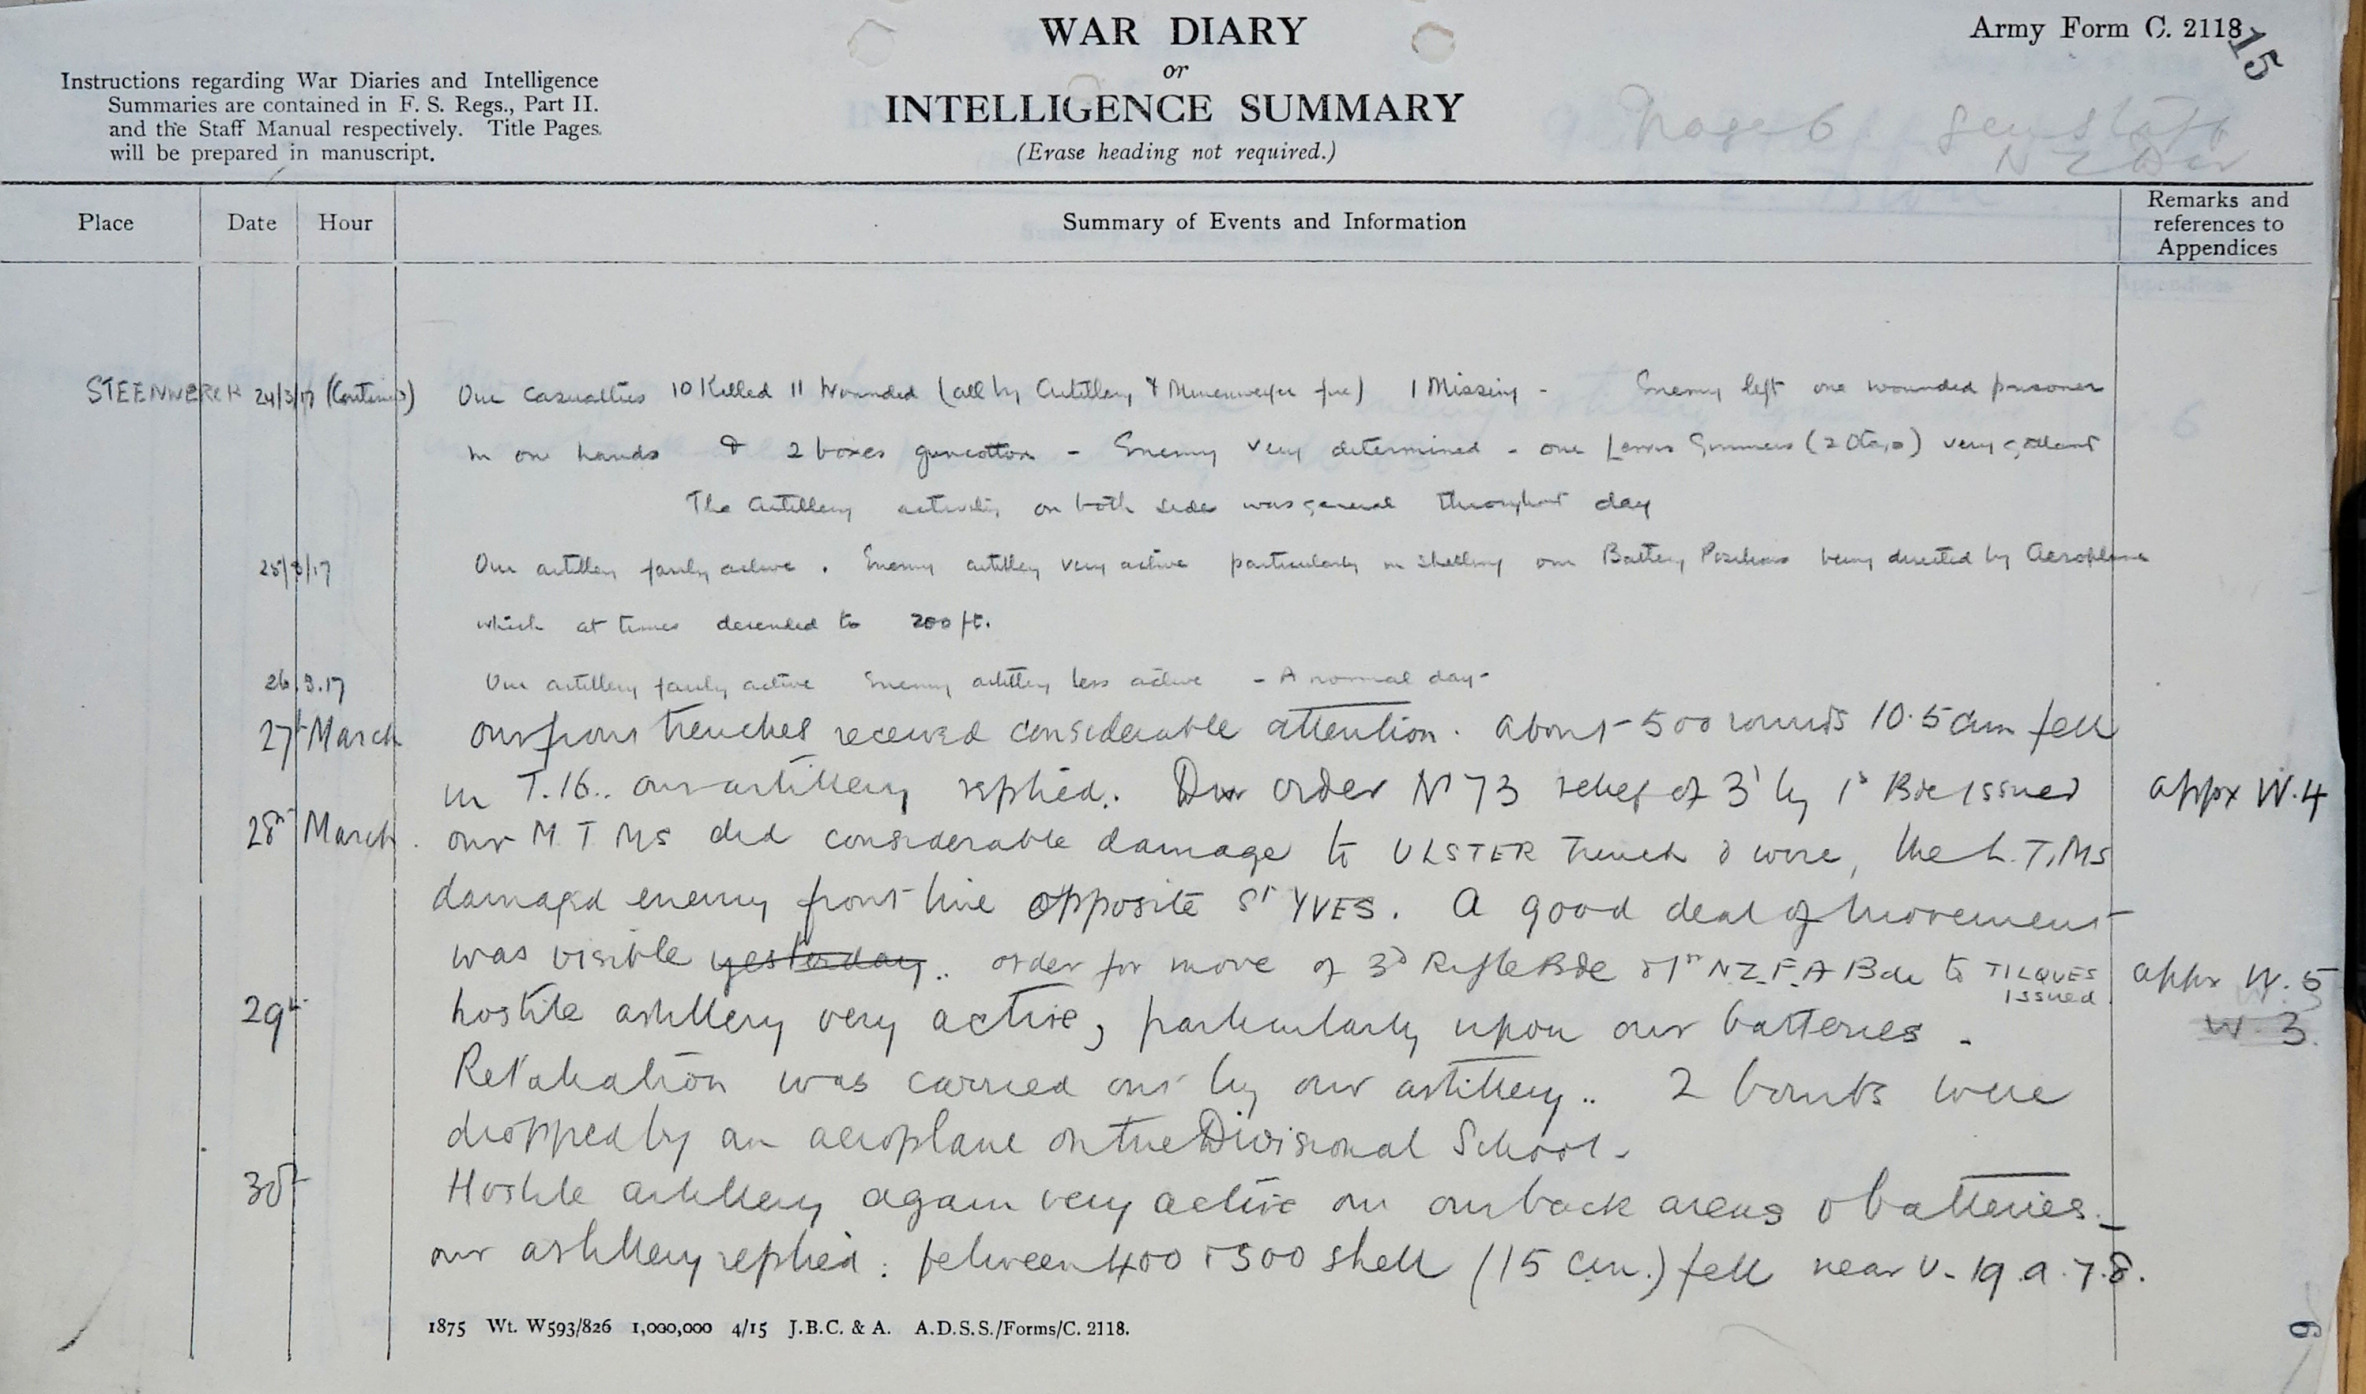 WAR DIARY
or
INTELLIGENCE SUMMARY
(Erase heading not required.)
Army Form C. 2118
15
Instructions regarding War Diaries and Intelligence
Summaries are contained in F. S. Regs., Part II.
and the Staff Manual respectively. Title Pages
will be prepared in manuscript.
Page 6 Gen Staff
N Z Div
Place Date Hour Summary of Events and Information Remarks and
references to
Appendices
STEENWERCK 24/3/17 (Continued) Our Casualties 10 Killed 11 Wounded (all by Artillery & Minenwerfer fire) 1 Missing - Enemy left one wounded prisoner
in our hands & 2 boxes guncotton - Enemy very determined - our Lewis Gunners (2 Otago) very gallant
The Artillery activity on both sides was general throughout day
25/3/17 Our artillery fairly active. Enemy artillery very active particularly in shelling our Battery Positions being directed by Aeroplane
which at times descended to 200 ft.
26.3.17 Our artillery fairly active Enemy artillery less active - A normal day -
27t March our front trenches received considerable attention. about 500 rounds 10.5 cm fell
in T.16.. our artillery replied. Div order No 73 relief of 3d by 1st Bde issued appx W.4
28th March. our M T Ms did considerable damage to ULSTER Trench & wire, the L.T.Ms
damaged enemy front line opposite St YVES. A good deal of movement
was visible yesterday.. order for move of 3d Rifle Bde & 1st N.Z.F.A Bde to TILQUES appx W.5
issued
W.3
29t hostile artillery very active, particularly upon our batteries.
Retaliation was carried out by our artillery.. 2 bombs were
dropped by an aeroplane on the Divisional School.
30t Hostile artillery again very active on our back areas & batteries.
our artillery replied: between 400 & 500 shell (15 cm.) fell near U.19.a.7.8.
1875 Wt. W593/826 1,000,000 4/15 J.B.C. & A. A.D.S.S./Forms/C. 2118.